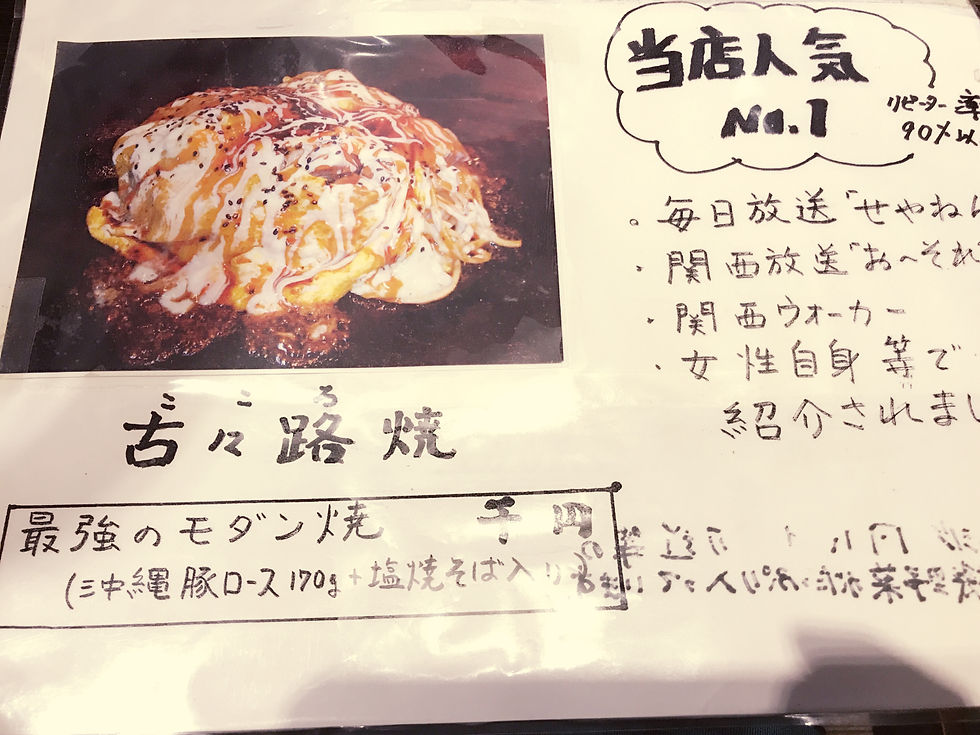 当店人気
No.1
リピーター率
90%以
・毎日放送「せやねん
・関西放送「お〜それ
・関西ウォーカー
・女性自身 等で
紹介されまし
ここる
古々路焼
最強のモダン焼 千円
(沖縄豚ロース170g+塩焼そば入り)